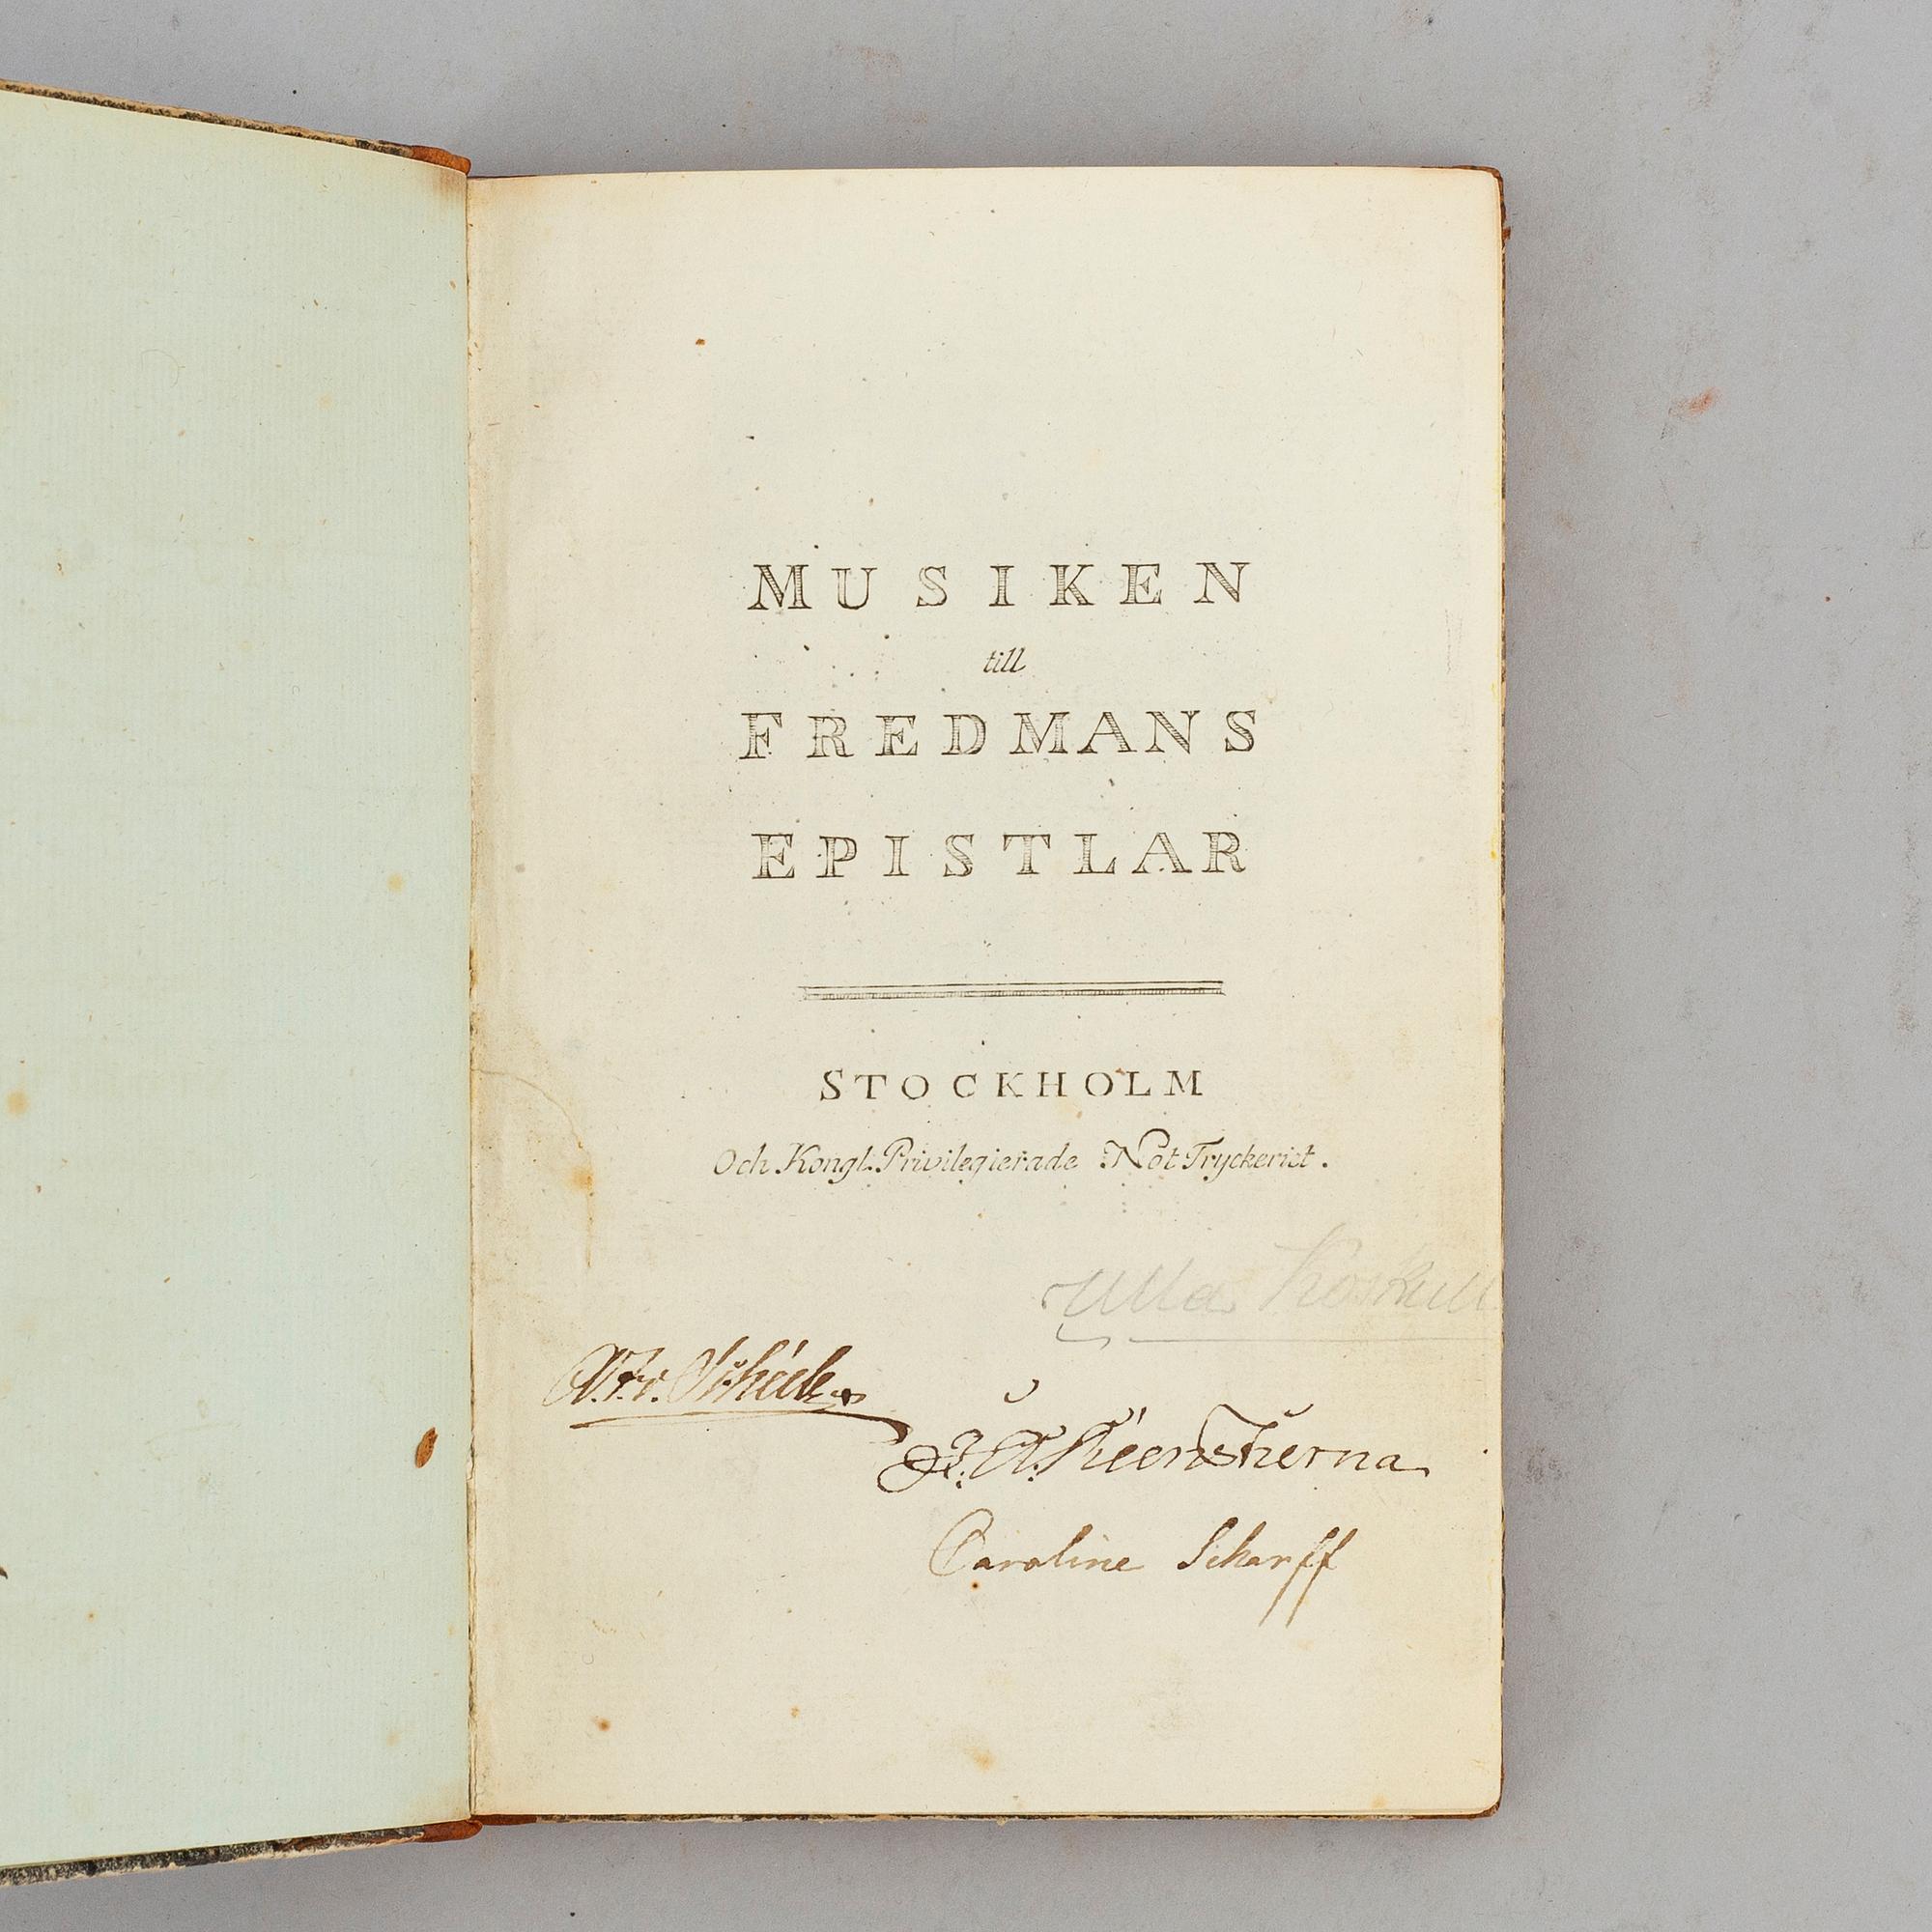 MUSIKEN
till
FREDMANS
EPISTLAR
STOCKHOLM
Och Kongl. Privilegierade Not Tryckeriet.
Ulla Koskull
Caroline Scharff